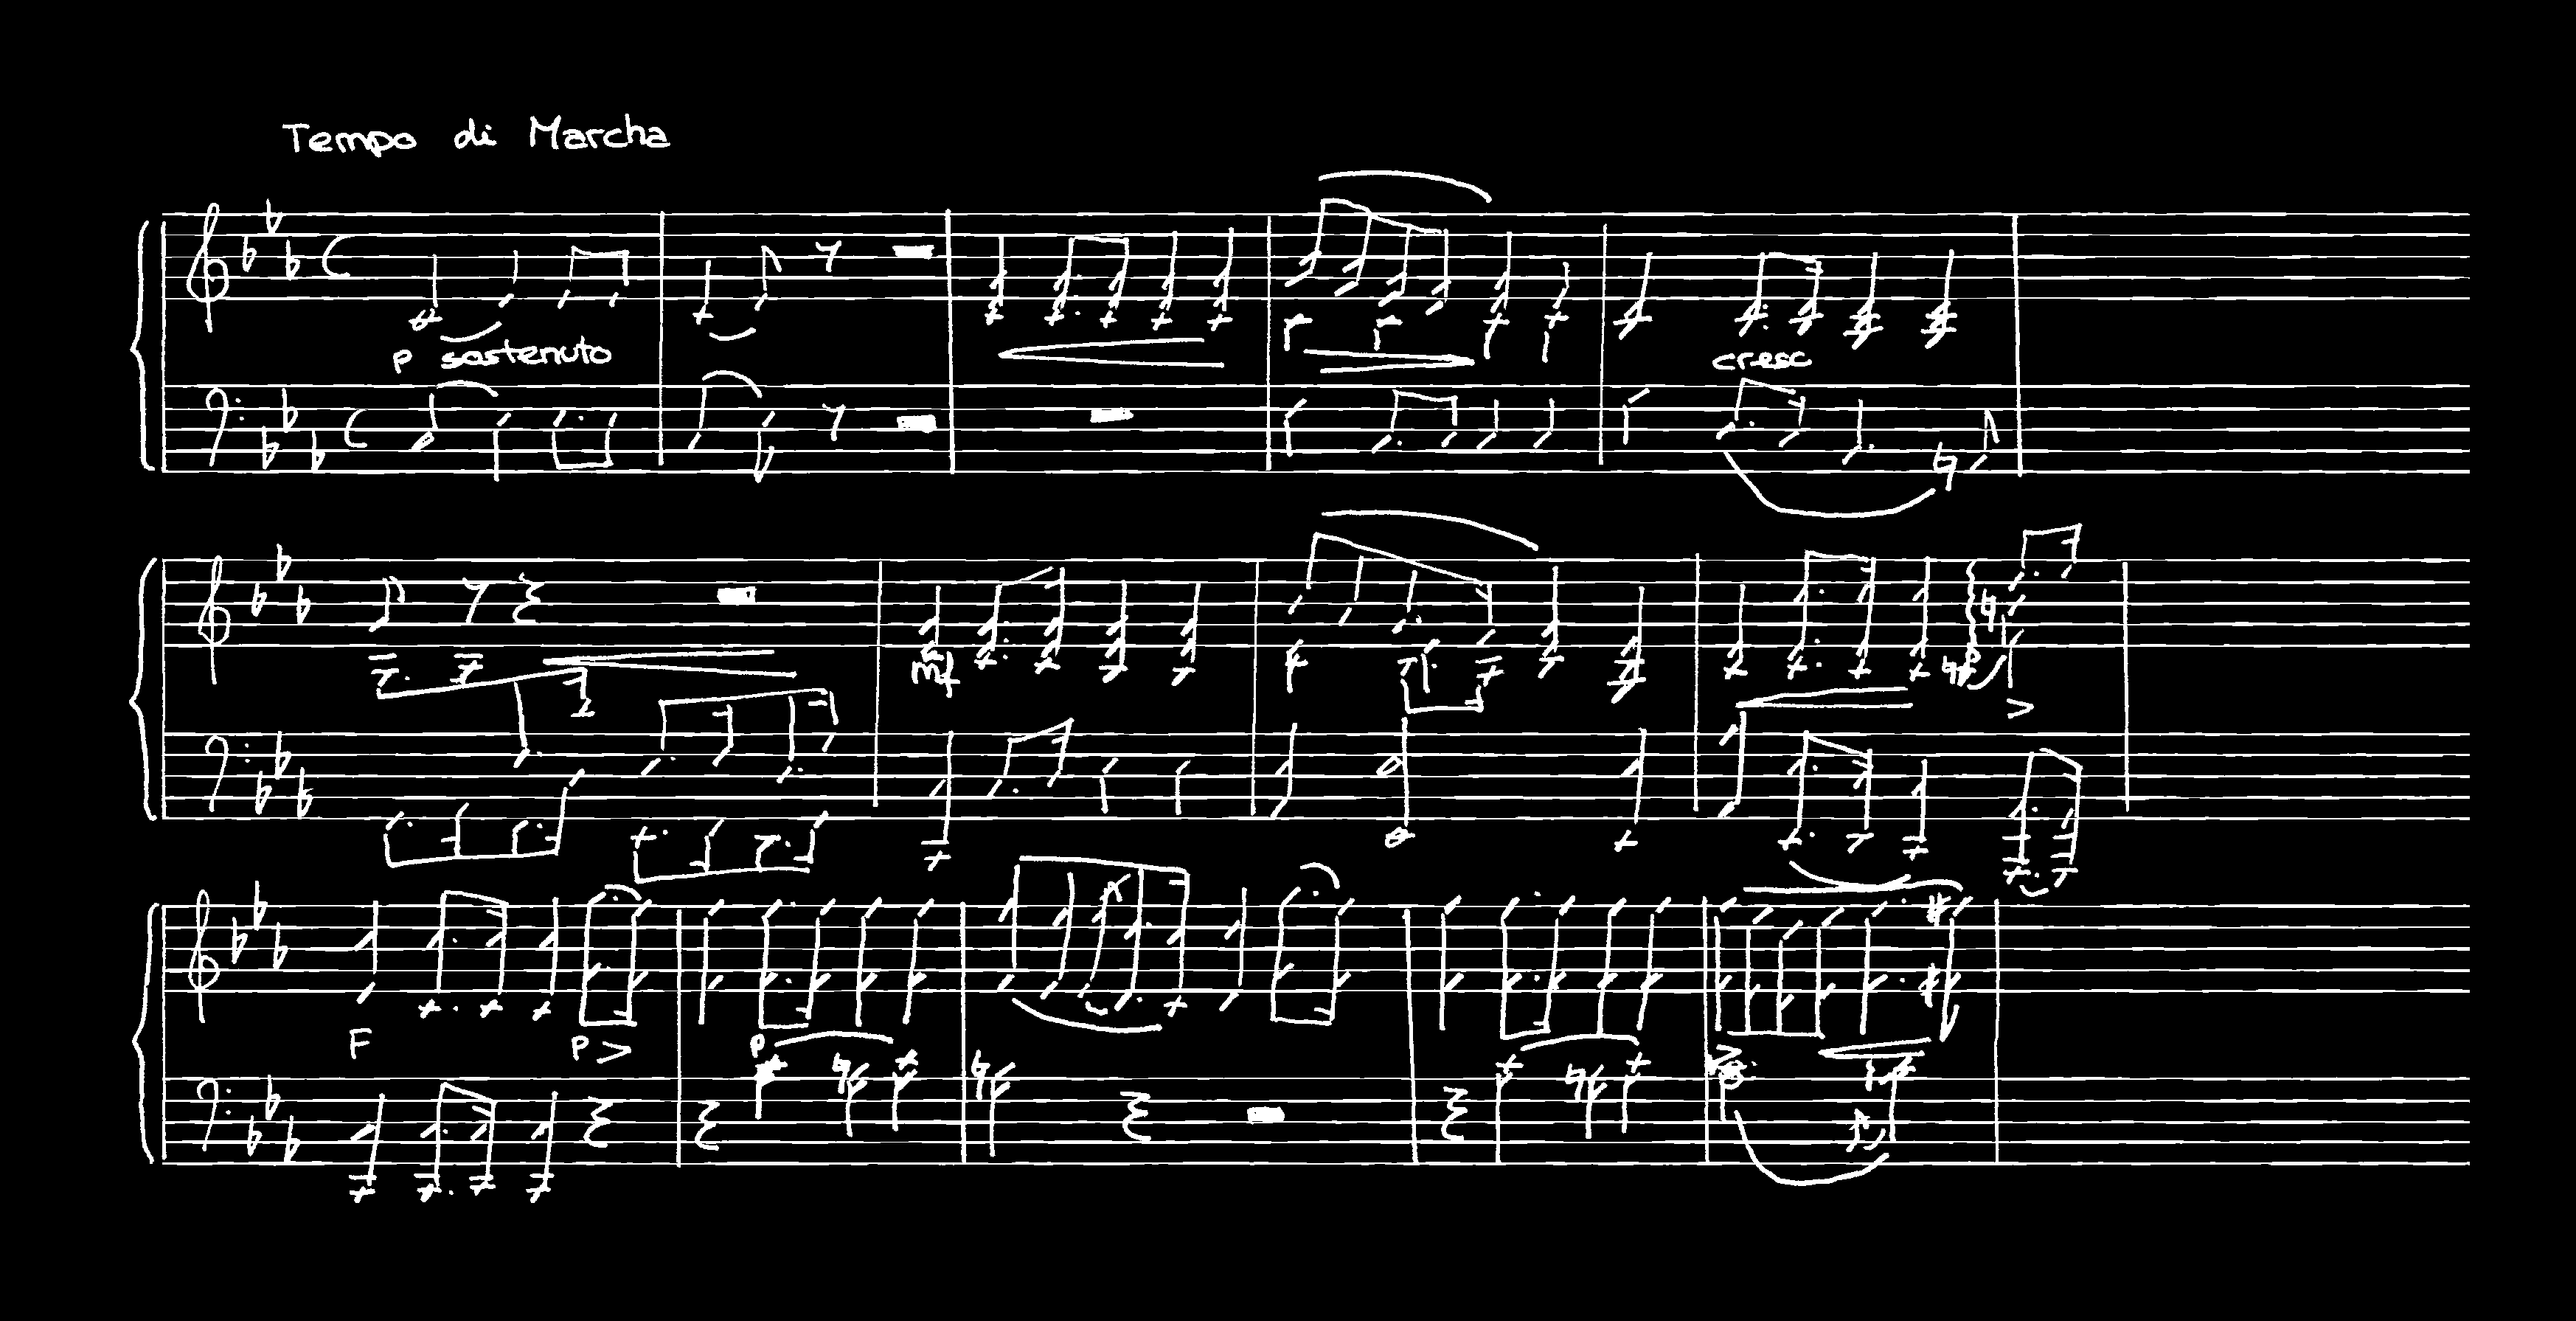 Tempo di Marcha
p sostenuto
cresc
mf
F p
p